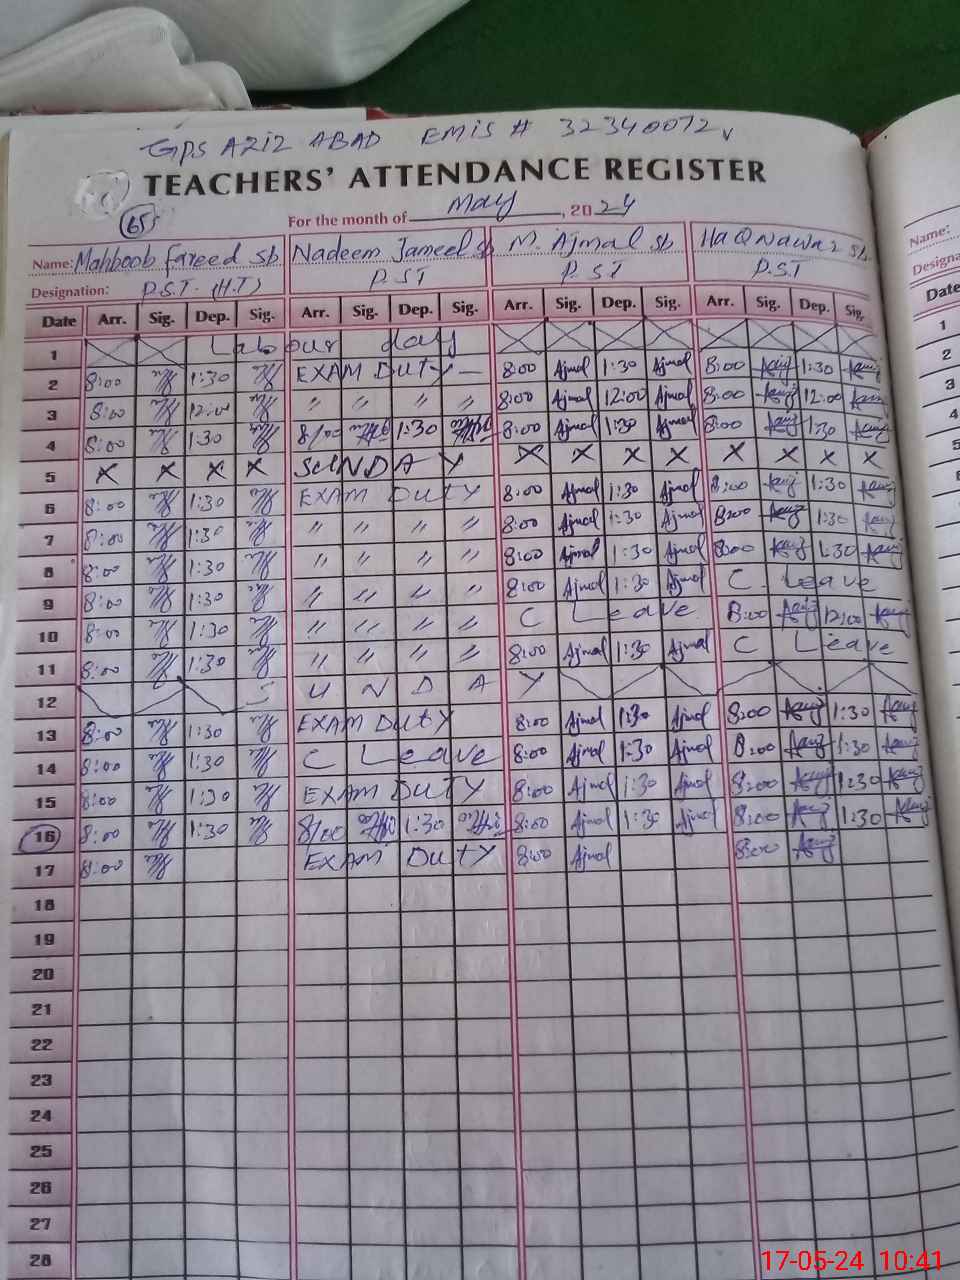 GPS AZIZ ABAD EMIS # 32340072
TEACHERS' ATTENDANCE REGISTER
65
For the month of May, 2024
Name: Mahboob Fareed Sb. Nadeem Jameel Sb M. Ajmal Sb HaQ Nawaz Sb. Name:
Designation: P.S.T. (H.T) P.S.T P.S.T P.S.T Designa
Date Arr. Sig. Dep. Sig. Arr. Sig. Dep. Sig. Arr. Sig. Dep. Sig. Arr. Sig. Dep. Sig. Date
1 Labour day 1
2 8:00 1:30 EXAM DUTY — 8:00 Ajmal 1:30 Ajmal 8:00 1:30 2
3 8:00 12:00 " " " " 8:00 Ajmal 12:00 Ajmal 8:00 12:00 3
4 8:00 1:30 8/00 1:30 8:00 Ajmal 1:30 Ajmal 8:00 1:30 4
5 X X X X SUNDAY X X X X X X X X 5
6 8:00 1:30 EXAM DUTY 8:00 Ajmal 1:30 Ajmal 8:00 1:30
7 8:00 1:30 " " " " 8:00 Ajmal 1:30 Ajmal 8:00 1:30
8 8:00 1:30 " " " " 8:00 Ajmal 1:30 Ajmal 8:00 1:30
9 8:00 1:30 " " " " 8:00 Ajmal 1:30 Ajmal C. Leave
10 8:00 1:30 " " " " C Leave 8:00 12:00
11 8:00 1:30 " " " " 8:00 Ajmal 1:30 Ajmal C Leave
12 SUNDAY
13 8:00 1:30 EXAM DUTY 8:00 Ajmal 1:30 Ajmal 8:00 1:30
14 8:00 1:30 C Leave 8:00 Ajmal 1:30 Ajmal 8:00 1:30
15 8:00 1:30 EXAM DUTY 8:00 Ajmal 1:30 Ajmal 8:00 1:30
16 8:00 1:30 8/00 1:30 8:00 Ajmal 1:30 Ajmal 8:00 1:30
17 8:00 EXAM DUTY 8:00 Ajmal 8:00
18
19
20
21
22
23
24
25
26
27
28
17-05-24 10:41